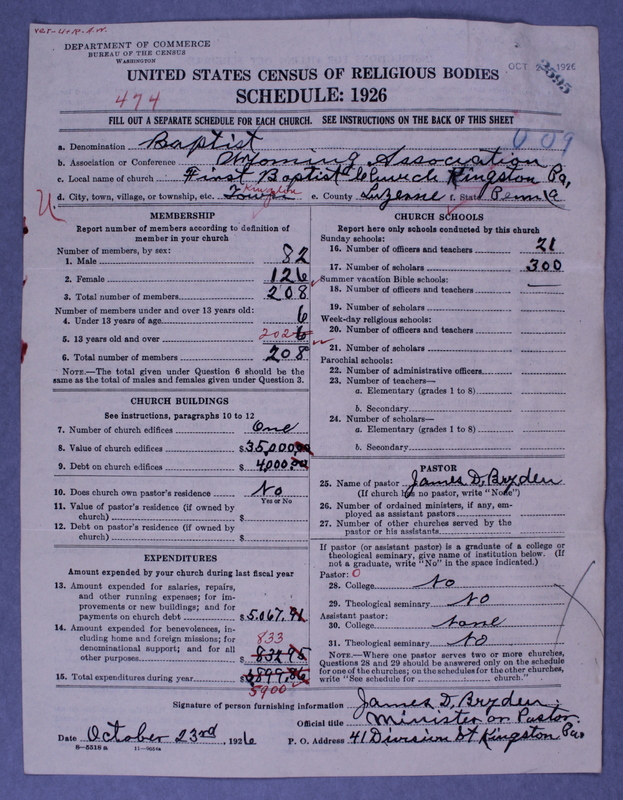 DEPARTMENT OF COMMERCE
BUREAU OF THE CENSUS
WASHINGTON
UNITED STATES CENSUS OF RELIGIOUS BODIES
OCT 1926
3595
SCHEDULE: 1926
474
FILL OUT A SEPARATE SCHEDULE FOR EACH CHURCH. SEE INSTRUCTIONS ON THE BACK OF THIS SHEET
009
a. Denomination Baptist
b. Association or Conference Wyoming Association
c. Local name of church First Baptist Church Kingston Pa,
Kingston
d. City, town, village, or township, etc. Town e. County Luzerne f. State Penna
U
MEMBERSHIP
Report number of members according to definition of
member in your church
Number of members, by sex:
1. Male 82
2. Female 126
3. Total number of members 208
Number of members under and over 13 years old:
4. Under 13 years of age 6
5. 13 years old and over 202
6. Total number of members 208
NOTE.—The total given under Question 6 should be
the same as the total of males and females given under Question 3.
CHURCH BUILDINGS
See instructions, paragraphs 10 to 12
7. Number of church edifices One
8. Value of church edifices $35,000,00
9. Debt on church edifices $4000.00
10. Does church own pastor's residence No
Yes or No
11. Value of pastor's residence (if owned by
church) $
12. Debt on pastor's residence (if owned by
church) $
EXPENDITURES
Amount expended by your church during last fiscal year
13. Amount expended for salaries, repairs,
and other running expenses; for im-
provements or new buildings; and for
payments on church debt $5,067.91
14. Amount expended for benevolences, in-
cluding home and foreign missions; for 833
denominational support; and for all
other purposes 832 95
15. Total expenditures during year $5899.86
5900
CHURCH SCHOOLS
Report here only schools conducted by this church
Sunday schools:
16. Number of officers and teachers 21
17. Number of scholars 300
Summer vacation Bible schools:
18. Number of officers and teachers —
19. Number of scholars
Week-day religious schools:
20. Number of officers and teachers
21. Number of scholars
Parochial schools:
22. Number of administrative officers
23. Number of teachers—
a. Elementary (grades 1 to 8)
b. Secondary
24. Number of scholars—
a. Elementary (grades 1 to 8)
b. Secondary
PASTOR
25. Name of pastor James D, Bryden
(If church has no pastor, write "None")
26. Number of ordained ministers, if any, em-
ployed as assistant pastors
27. Number of other churches served by the
pastor or his assistants
If pastor (or assistant pastor) is a graduate of a college or
theological seminary, give name of institution below. (If
not a graduate, write "No" in the space indicated.)
Pastor: 0
28. College No
29. Theological seminary No
Assistant pastor:
30. College None
31. Theological seminary No
NOTE.—Where one pastor serves two or more churches,
Questions 28 and 29 should be answered only on the schedule
for one of the churches; on the schedules for the other churches,
write "See schedule for church."
Signature of person furnishing information James D, Bryden,
Official title Minister or Pastor.
Date October 23rd, 1926 P. O. Address 41 Division St Kingston Pa.
8-5518 a